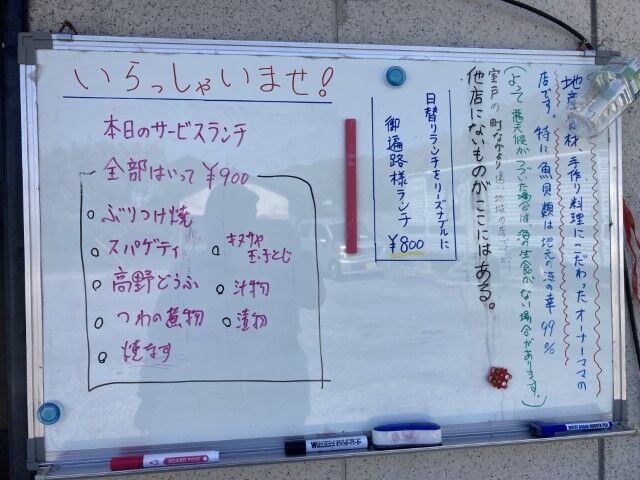 いらっしゃいませ!
本日のサービスランチ
全部はいって ¥900
ぶりつけ焼
スパゲティ
高野どうふ
つわの煮物
焼なす
キヌサヤ
玉子とじ
汁物
漬物
地産食材、手作り料理にこだわったオーナーママの
店です。特に魚貝類は地元の海の幸99%
(よって 悪天候がつづいた場合は海の生食がない場合があります。)
室戸の町なかより 地域の店です
他店にないものがここにはある。
日替りランチをリーズナブルに
御遍路様ランチ
¥800
BOARD
WHITE BOARD MARKER